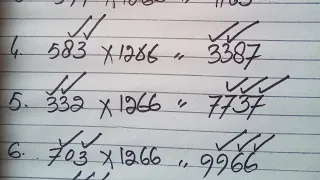 4. 583 × 1266 " 3387
5. 332 × 1266 " 7737
6. 703 × 1266 " 9966